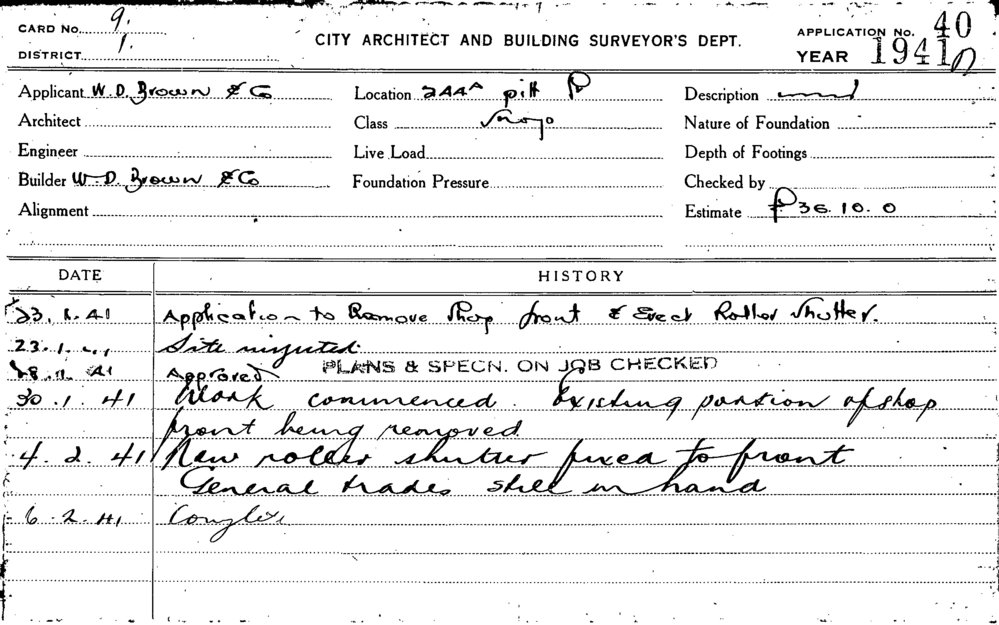 CARD No. 9.
DISTRICT 1.
CITY ARCHITECT AND BUILDING SURVEYOR'S DEPT.
APPLICATION No. 40
YEAR 1941
Applicant W.D. Brown & Co Location 244A pitt Description
Architect Class Nature of Foundation
Engineer Live Load Depth of Footings
Builder W.D. Brown & Co Foundation Pressure Checked by
Alignment Estimate £36.10.0
DATE HISTORY
23.1.41 Application to Remove Shop front & Erect Roller Shutter.
23.1.41 Site inspected.
28.1.41 Approved PLANS & SPECN. ON JOB CHECKED
30.1.41 Work commenced. Existing portion of shop
front being removed
4.2.41 New roller shutter fixed to front
General trades still in hand
6.2.41